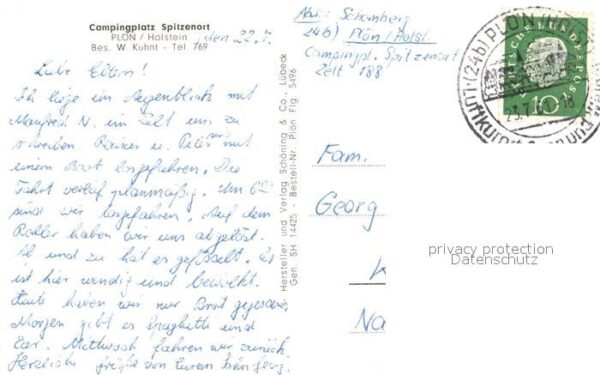 Campingplatz Spitzenort
PLÖN / Holstein
Bes. W. Kuhnt - Tel. 769
den 22.7.
Liebe Eltern!
Ich liege im Augenblick mit
Manfred N. im Zelt um zu
schreiben. Rainer u. Peter sind mit
einem Boot losgefahren. Die
Fahrt verlief planmäßig. Um 6
sind wir losgefahren. Auf dem
Roller haben wir uns abgelöst.
Ab und zu hat es getröpfelt. Es
ist hier windig und bewölkt.
Heute haben wir nur Brot gegessen.
Morgen gibt es Spaghetti und
Eier. Mittwoch fahren wir zurück.
Herzliche Grüße von Eurem
Hersteller und Verlag Schöning & Co., Lübeck
Gen. SH 14425 Bestell-Nr. Plön Flg. 5496
Abs.: Schomberg
24b) Plön / Holst.
Campingpl. Spitzenort
Zelt 188
Fam.
Georg
K
Na
DEUTSCHE BUNDESPOST
10
(24b) PLÖN (HOLST)
23.7. 18
Luftkurort
privacy protection
Datenschutz